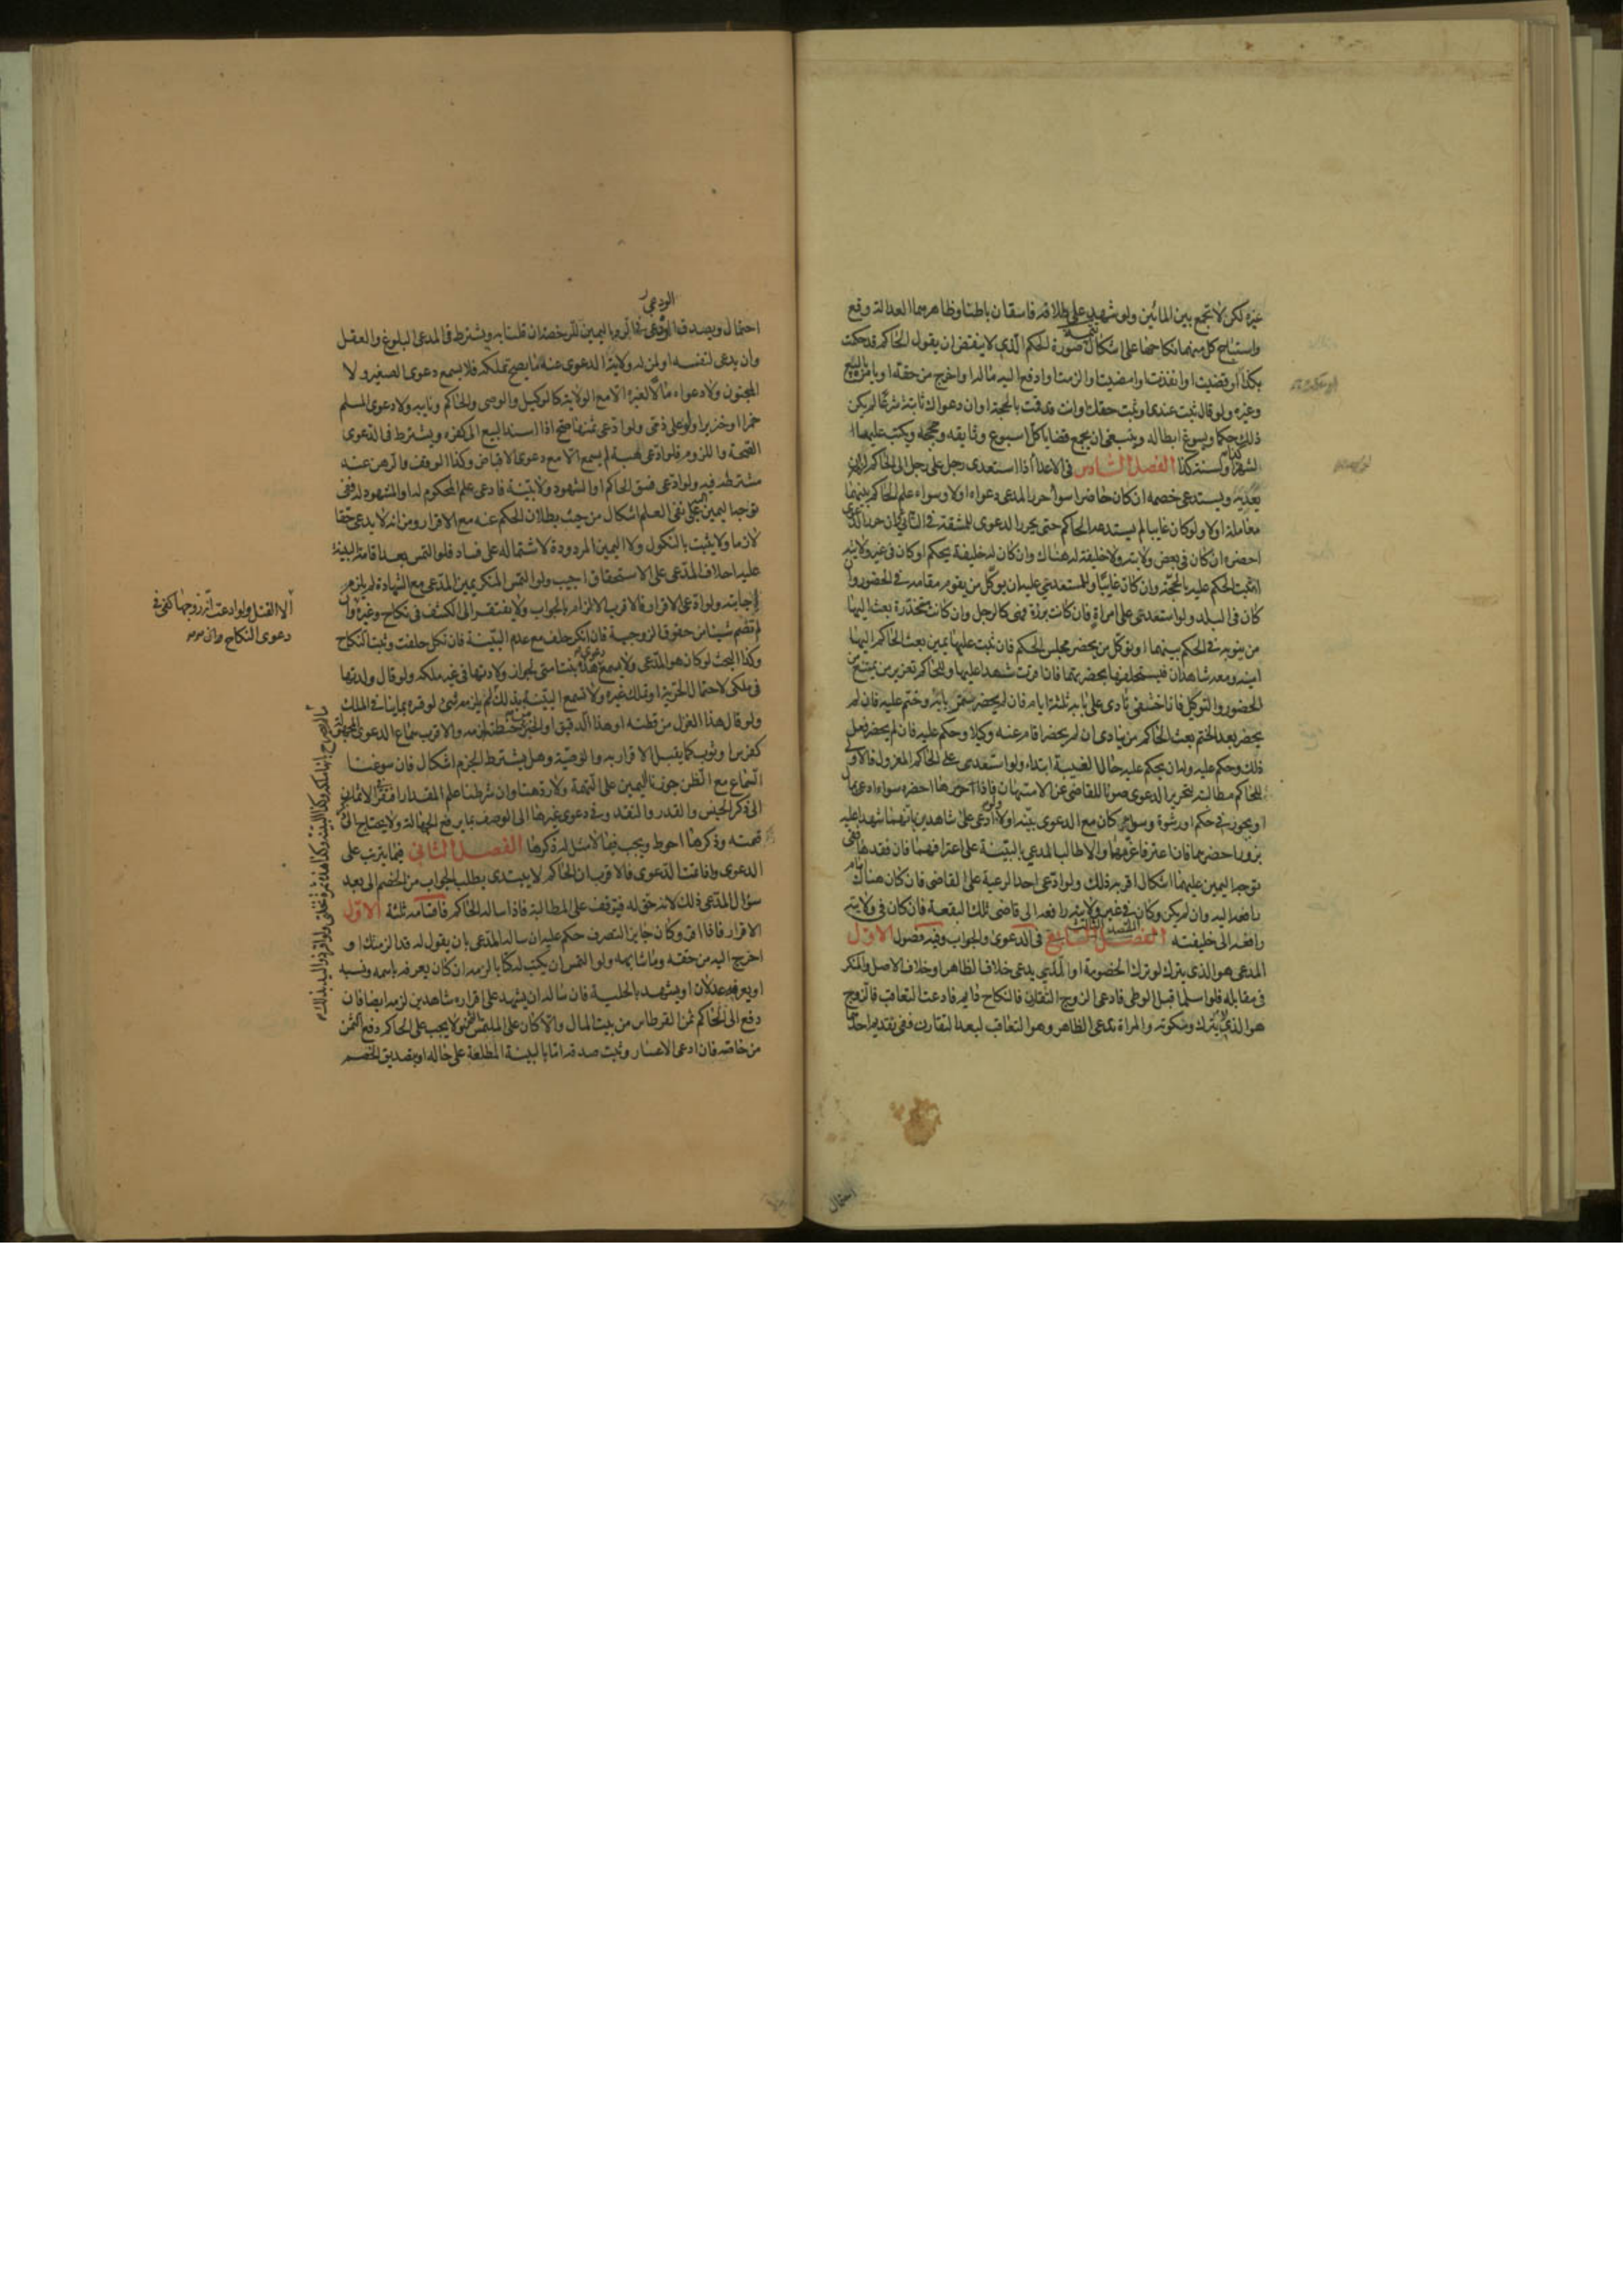 غيره لكن لا تجمع بين المائين ولو شهد على طلاقه فاسقان باطنا وظاهرهما العدالة وقع
واستباح كل منهما نكاحها على اشكال تتمة صورة الحكم الذي لا ينقض ان يقول الحاكم قد حكمت
بكذا او قضيت او انفذت او امضيت او الزمت او ادفع اليه ماله او اخرج من حقه او يامره بالبيع
وغيره ولو قال ثبت عندي او ثبت حقك او انت قد قمت بالحجة او ان دعواك ثابتة شرعا لم يكن
ذلك حكما ويسوغ ابطاله وينبغي ان يجمع قضايا كل اسبوع ووثايقه وحججه ويكتب عليها
لشهر كذا ولسنة كذا الفصل السادس في الاعداء اذا استعدى رجل على رجل الى الحاكم لزمه ان
يعديه ويستدعي خصمه ان كان حاضرا سواء حرر المدعي دعواه او لا وسواء علم الحاكم بينهما
معاملة او لا ولو كان غايبا لم يستدعه الحاكم حتى يحرر الدعوى للمشقة في الثاني فان حرر الدعوى
احضره ان كان في بعض ولايته ولا خليفة له هناك وان كان له خليفة يحكم او كان في غير ولايته
اثبت الحكم عليه بالحجة وان كان غايبا وللمستعدى عليه ان يوكل من يقوم مقامه في الحضور وان
كان في البلد ولو استعدى على امراة فان كانت برزة فهي كالرجل وان كانت مخدرة بعث اليها
من ينوبه في الحكم بينهما او توكل من يحضر مجلس الحكم فان ثبت عليها يمين بعث الحاكم اليها
امينه ومعه شاهدان فيستحلفها بحضرتهما فان اقرت شهدا عليها وللحاكم تعزير من يمتنع من
الحضور او التوكل فان اختفى نادى على بابه ثلثة ايام فان لم يحضر سمر بابه وختم عليه فان لم
يحضر بعد الختم بعث الحاكم من ينادي ان لم يحضر اقام عنه وكيلا وحكم عليه فان لم يحضر فعل
ذلك وحكم عليه وله ان يحكم عليه حال الغيبة ابتداء ولو استعدى على الحاكم المعزول فالاولى
للحاكم مطالبته بتحرير الدعوى صونا للقاضي عن الامتهان فاذا حررها احضره سواء ادعى بمال
او بجور في حكم او رشوة وسواء كان مع الدعوى بينة او لا ولو ادعى على شاهدين بانهما شهدا عليه
بزور احضرهما فان اعترفا غرمهما والا طالب المدعي بالبينة على اعترافهما فان فقدها ففي
توجه اليمين عليهما اشكال اقربه ذلك ولو ادعى احد الرعية على القاضي فان كان هناك امام
رافعه اليه وان لم يكن وكان في غير ولايته رافعه الى قاضي تلك البقعة فان كان في ولايته
رافعه الى خليفته المقصد الثالث في الدعوى والجواب وفيه فصول الاول
المدعي هو الذي يترك لو ترك الخصومة او الذي يدعي خلاف الظاهر او خلاف الاصل والمنكر
في مقابله فلو اسلما قبل الوطي فادعى الزوج التقارن فالنكاح دايم فادعت التعاقب فالزوج
هو الذي لا يترك وسكوته والمراة تدعي الظاهر وهو التعاقب لبعد التقارن ففي تقديم احدهما
احتمال
الودعي
احتمال ويصدق الودعي في الرد باليمين للرخصة ان قلنا به ويشترط في المدعي البلوغ والعقل
وان يدعي لنفسه او لمن له ولاية الدعوى عنه ما يصح تملكه فلا يسمع دعوى الصغير ولا
المجنون ولا دعواه مالا لغيره الا مع الولاية كالوكيل والوصي والحاكم ونايبه ولا دعوى المسلم
خمرا او خنزيرا ولو على ذمي ولو ادعى ثمنها صح اذا اسند البيع الى كفره ويشترط في الدعوى
الصحة واللزوم فلو ادعى هبة لم يسمع الا مع دعوى الاقباض وكذا الوقف والرهن عند
مشترطه فيه ولو ادعى فسق الحاكم او الشهود ولا بينة فادعى علم المحكوم له او المشهود له ففي
توجه اليمين على نفي العلم اشكال من حيث بطلان الحكم عنه مع الاقرار ومن انه لا يدعي حقا
لازما ولا يثبت بالنكول ولا اليمين المردودة لاشتماله على فساد فلو التمس بعد اقامة البينة
عليه احلاف المدعي على الاستحقاق اجيب ولو التمس المنكر يمين المدعي مع الشهادة لم يلزم
اجابته ولو ادعى الاقرار فالاقرب الالزام بالجواب ولا يفتقر الى الكشف في نكاح وغيره وان
لم تضم شيئا من حقوق الزوجية فان انكر حلف مع عدم البينة فان نكل حلفت وثبت النكاح
وكذا البحث لو كان هو المدعي ولا يسمع دعوى هذه بنت امتي لجواز ولادتها في غير ملكه ولو قال ولدتها
في ملكي لاحتمال الحرية او تملك غيره ولا تسمع البينة بذلك لم يلزمه شيء لو فسره بما ينافي الملك
ولو قال هذا الغزل من قطنه او هذا الدقيق او الخبز من حنطته لزمه والاقرب سماع الدعوى المجهولة
كفرس او ثوب كما يقبل الاقرار به والوصية وهل يشترط الجزم اشكال فان سوغنا
السماع مع الظن جوزنا اليمين على التهمة ولا رد هنا وان شرطنا علم المقدار افتقر في الاثمان
الى ذكر الجنس والقدر والنقد وفي دعوى غيرها الى الوصف بما يرفع الجهالة ولا يحتاج الى ذكر
قيمته وذكرها احوط ويجب فيما لا مثل له ذكرها الفصل الثاني فيما يترتب على
الدعوى واذا تمت الدعوى فالاقرب ان الحاكم لا يبتدي بطلب الجواب من الخصم الا بعد
سؤال المدعي ذلك لانه حق له فيتوقف على المطالبة فاذا ساله الحاكم فاقسامه ثلثة الاول
الاقرار فاذا اقر وكان جايز التصرف حكم عليه ان ساله المدعي بان يقول له قد الزمتك او
اخرج اليه من حقه وما شابهه ولو التمس ان يكتب له كتابا لزمه ان كان يعرفه باسمه ونسبه
او يعرفه عدلان او يشهد بالحلية فان ساله ان يشهد على اقراره شاهدين لزمه ايضا فان
دفع الى الحاكم ثمن القرطاس من بيت المال والا كان على الملتمس الثمن ولا يجب على الحاكم دفع الثمن
من خاصه فان ادعى الاعسار وثبت صدقه اما بالبينة المطلعة على حاله او بتصديق الخصم
الا القتل ولو ادعت انه زوجها كفى في
دعوى النكاح وان